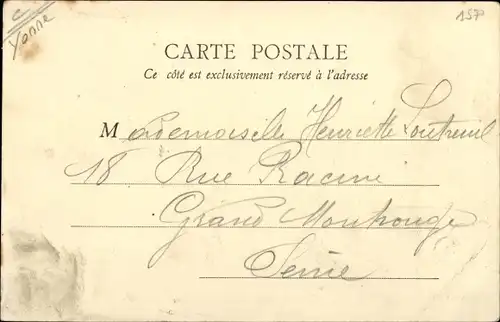 Yonne
157
CARTE POSTALE
Ce côté est exclusivement réservé à l'adresse
Mademoiselle Henriette Loutreuil
18 Rue Racine
Grand Montrouge
Seine